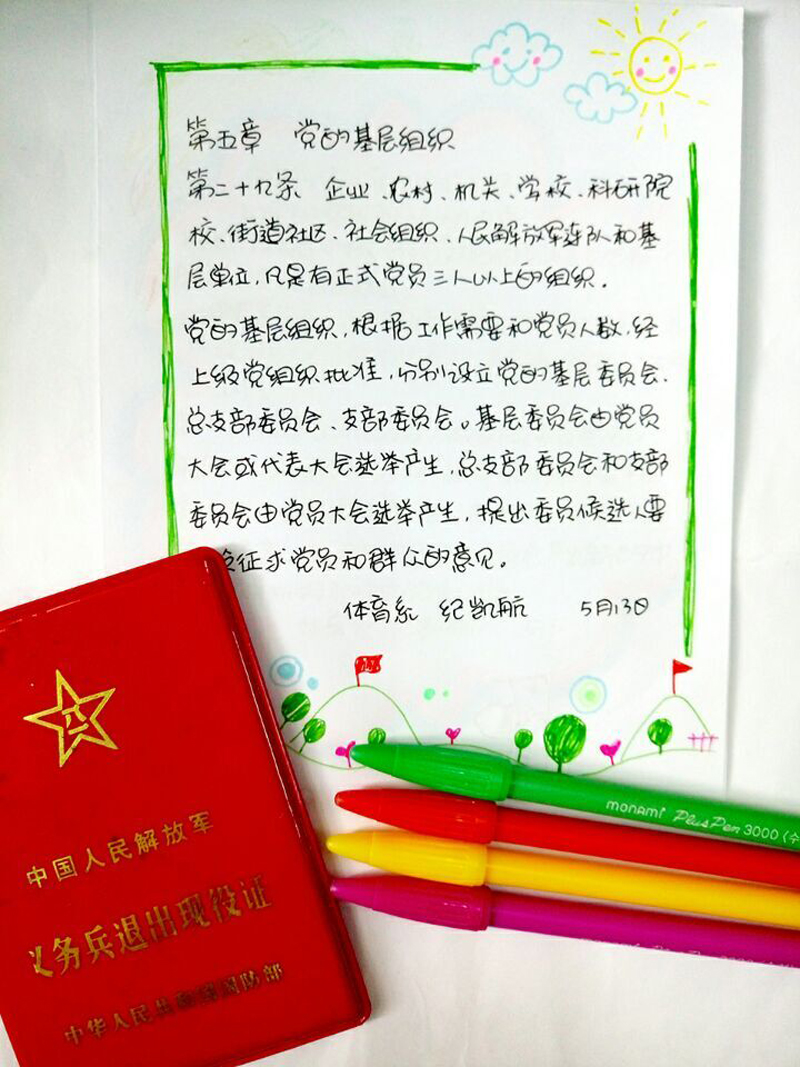 第五章 党的基层组织
第二十九条 企业、农村、机关、学校、科研院
校、街道社区、社会组织、人民解放军连队和基
层单位,凡是有正式党员三人以上的组织。
党的基层组织,根据工作需要和党员人数,经
上级党组织批准,分别设立党的基层委员会、
总支部委员会、支部委员会。基层委员会由党员
大会或代表大会选举产生,总支部委员会和支部
委员会由党员大会选举产生,提出委员候选人要
征求党员和群众的意见。
体育系 纪凯航 5月13日
八一
中国人民解放军
义务兵退出现役证
中华人民共和国国防部
monami Plus Pen 3000